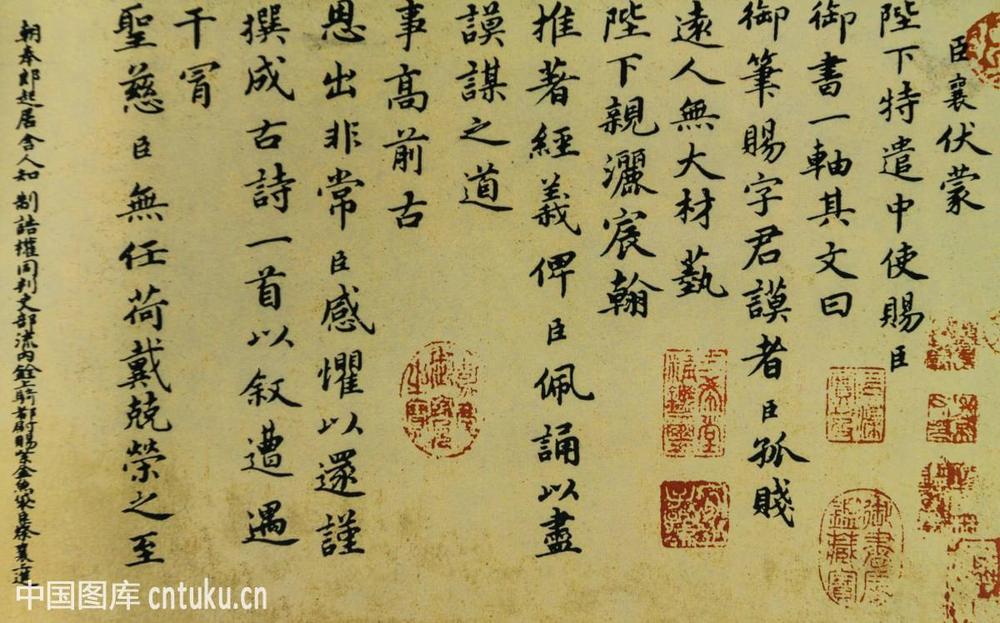 臣襄伏蒙
陛下特遣中使賜臣
御書一軸其文曰
御筆賜字君謨者臣孤賤
遠人無大材藝
陛下親灑宸翰
推著經義俾臣佩誦以盡
謨謀之道
事高前古
恩出非常臣感懼以還謹
撰成古詩一首以叙遭遇
干冒
聖慈臣無任荷戴兢榮之至
朝奉郎起居舍人知制誥權同判吏部流內銓上騎都尉賜紫金魚袋臣蔡襄上進
御書房鑑藏寶
中国图库 cntuku.cn